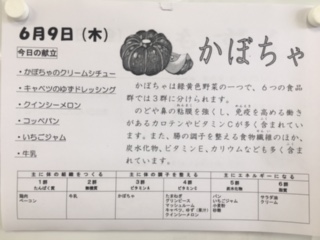 6月9日（木）
今日の献立
・かぼちゃのクリームシチュー
・キャベツのゆずドレッシング
・クインシーメロン
・コッペパン
・いちごジャム
・牛乳
かぼちゃ
かぼちゃは緑黄色野菜の一つで、６つの食品
群では３群に分けられます。
のどや鼻の粘膜を強くし、免疫を高める働き
があるカロテンやビタミンCが多く含まれてい
ます。また、腸の調子を整える食物繊維のほか、
炭水化物、ビタミンE、カリウムなども多く含ま
れています。
主に体の組織をつくる 主に体の調子を整える 主にエネルギーになる
1群 2群 3群 4群 5群 6群
たんぱく質 無機質 ビタミンA ビタミンC 炭水化物 脂質
鶏肉 牛乳 かぼちゃ たまねぎ パン サラダ油
ベーコン グリンピース いちごジャム クリーム
マッシュルーム 小麦粉
キャベツ、ゆず（果汁） 砂糖
クインシーメロン